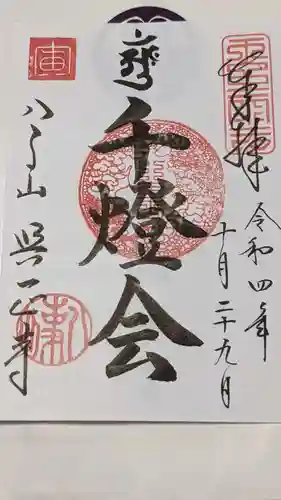 奉拝
令和四年
十月二十九日
千燈会
寅
八事山 興正寺